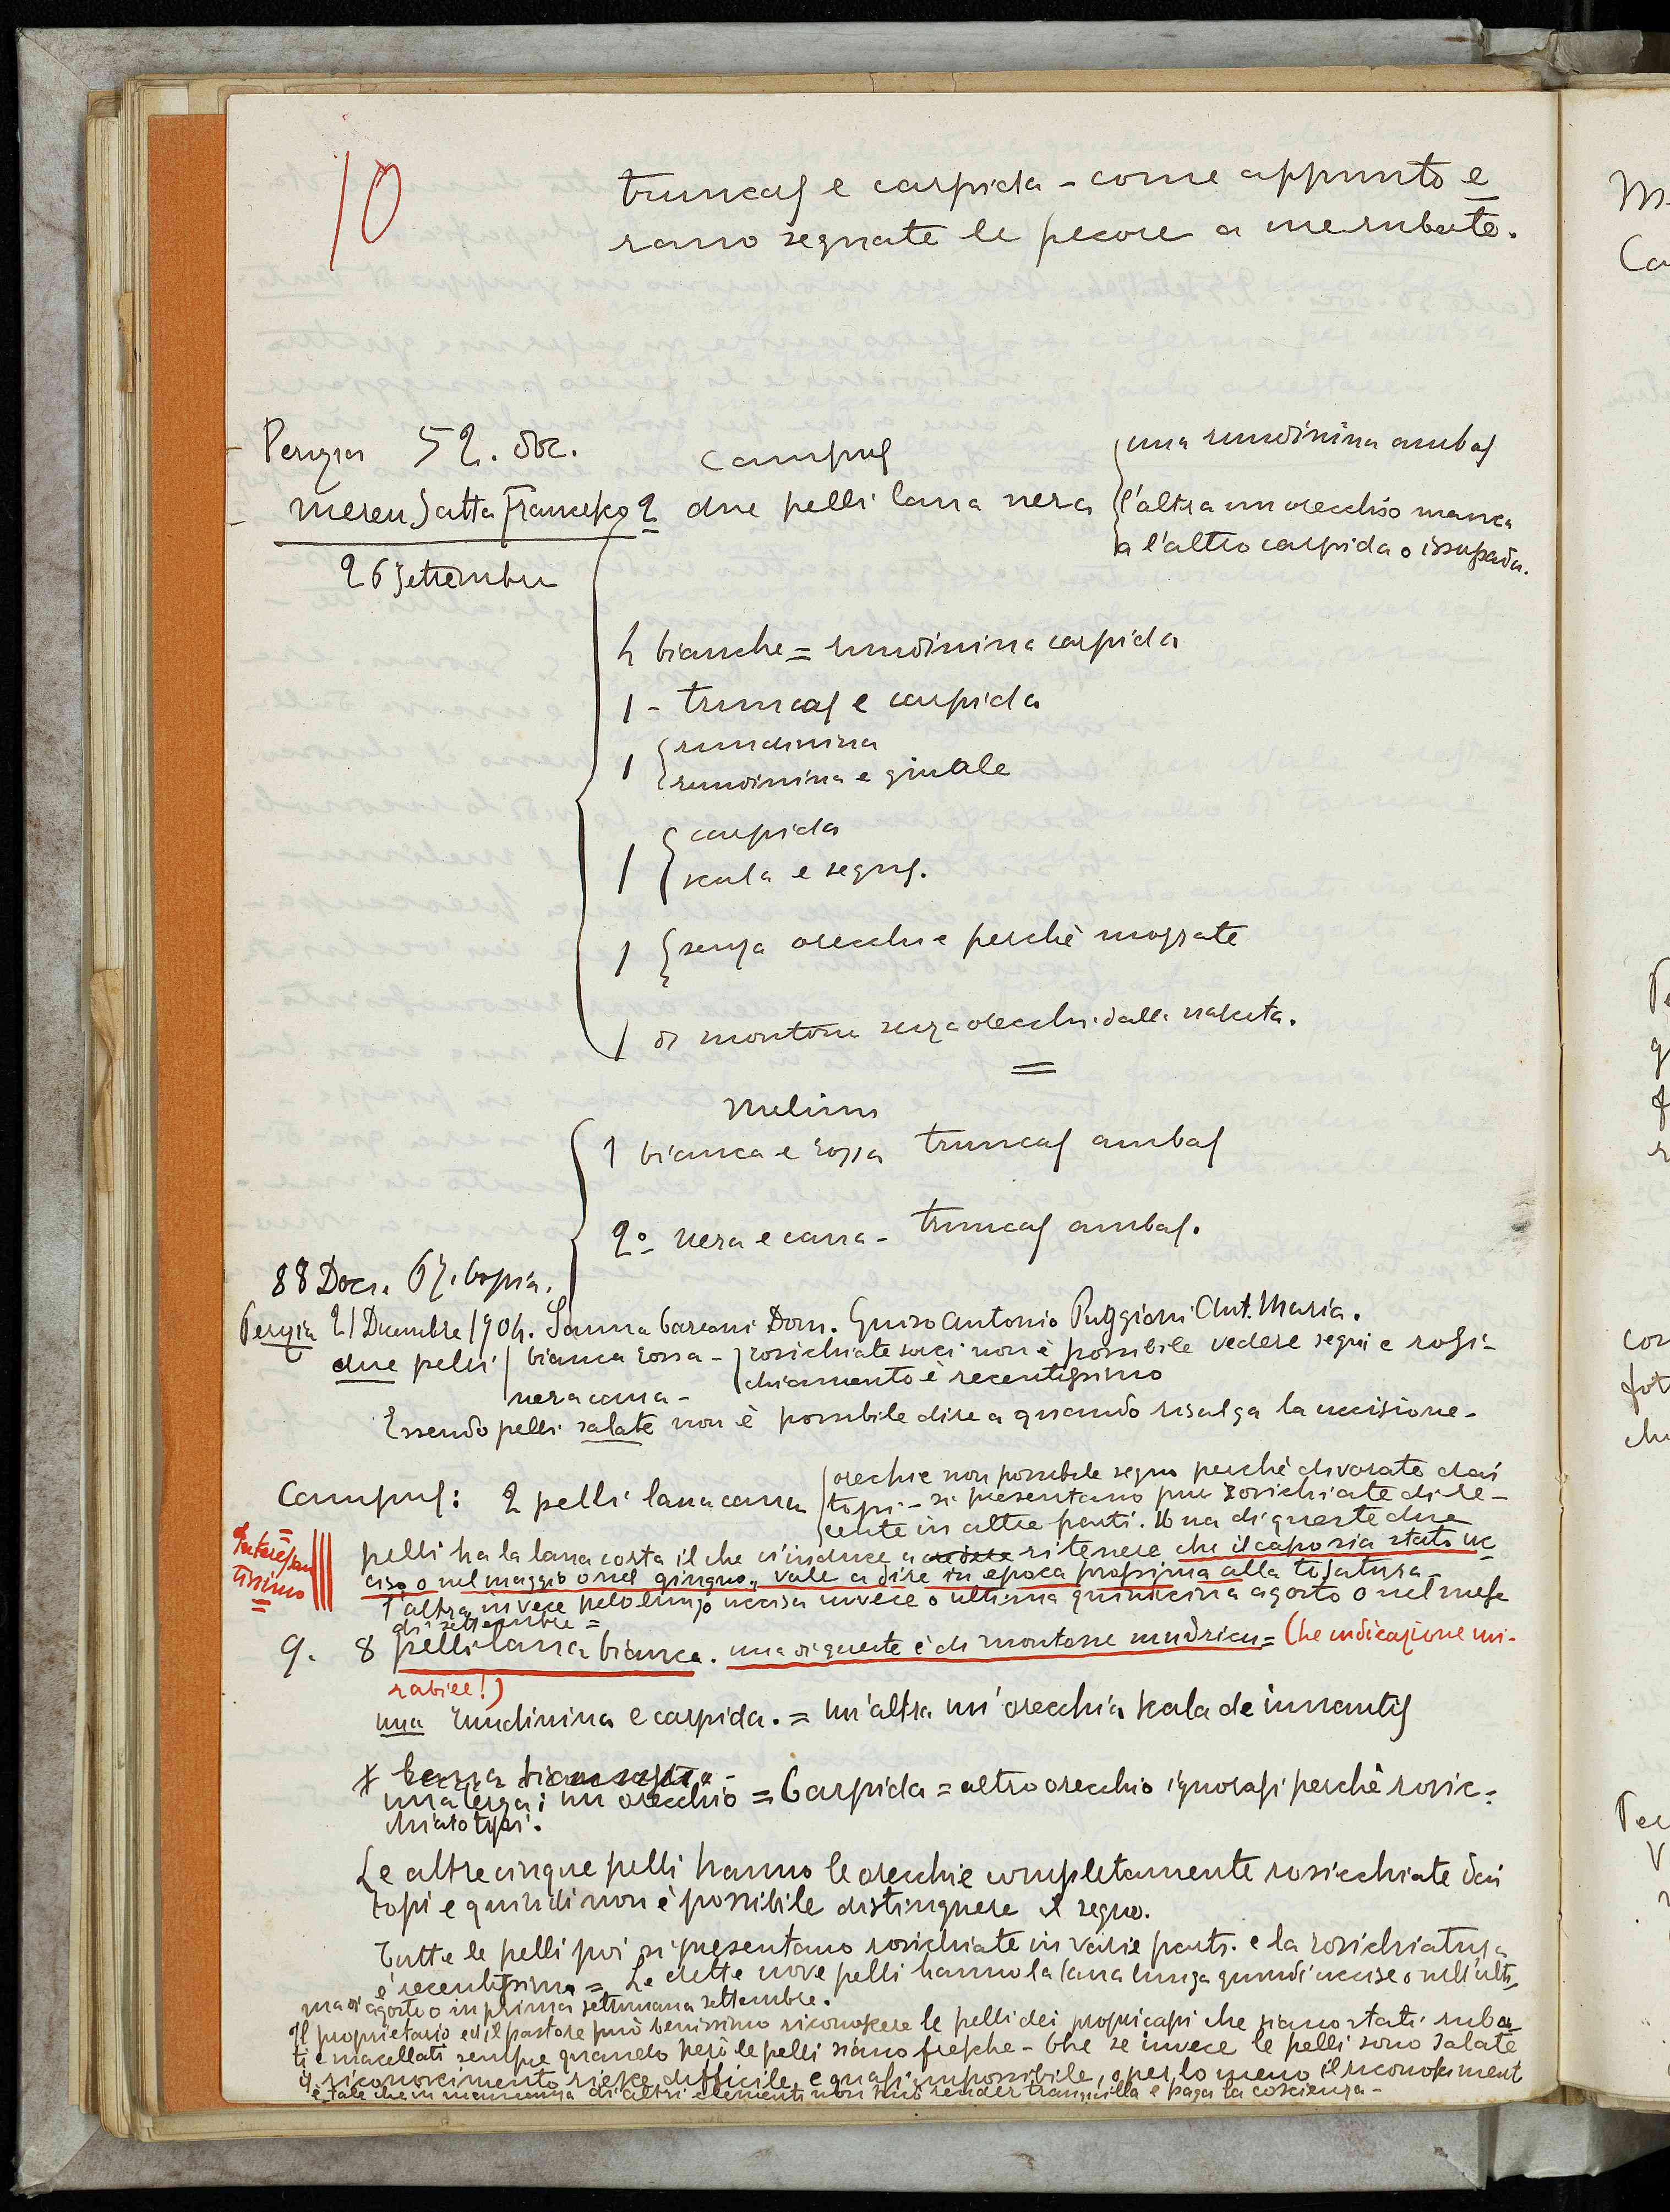 10
truncas e carpida - come appunto e
rano segnate le pecore a me rubate.
- Perizia 52. doc.
- Mereu Satta Francesco 2
26 Settembre
Campus
due pelli lana nera
una rundinina ambas
l'altra un orecchio manca
a l'altro carpida o issupada.
4 bianche = rundinina carpida
1 - truncas e carpida
1 rundinina
rundinina e giuale
1 carpida
scala e segus.
1 senza orecchie perchè mozzate
1 di montone senza orecchi dalla nascita.
=
Melinu
1 bianca e rossa truncas ambas
2º nera e cana - truncas ambas.
88 Docs. 67. Copia.
Perizia 21 Dicembre 1904. Sanna Dom. Guiso Antonio Puggioni Ant. Maria.
due pelli bianca rossa - rosichiate non è possibile vedere segni e rosi-
chiamento è recentissimo
nera cana -
Essendo pelli salate non è possibile dire a quando risalga la uccisione -
Campus: 2 pelli lana cana
orechie non possibile segno perchè divorate dai
topi - si presentano pur rosichiate di re-
cente in altre parti. Una di queste due
Interessan
tissimo
=
pelli ha la lana corta il che c'induce a credere ritenere che il capo sia stato uc
ciso o nel maggio o nel giugno, vale a dire in epoca prossima alla tosatura -
l'altra invece pelo lungo uccisa invece o ultima quindicina agosto o nel mese
di settembre =
9. 8 pelli lana bianca. una di queste è di montone mudricu = (che indicazione mi-
rabile!)
una rundinina e carpida. = un'altra un'orecchia scala de innantis
una terza: un orecchio = Carpida = altro orecchio ignorasi perchè rosic=
chiato topi.
Le altre cinque pelli hanno le orecchie completamente rosicchiate dai
topi e quindi non è possibile distinguere il segno.
Tutte le pelli poi si presentano rosichiate in varie parti. e la rosichiatura
è recentissima = Le dette nove pelli hanno la lana lunga quindi uccise o nell'ulti
ma di agosto o in prima settimana settembre.
Il proprietario ed il pastore può benissimo riconoscere le pelli dei propri capi che siano stati ruba
ti e macellati sempre quando però le pelli siano fresche - Che se invece le pelli sono salate
il riconoscimento riesce difficile, e quasi impossibile, o per lo meno il riconosciment
è tale che in mancanza di altri elementi non può render tranquilla e paga la coscienza -